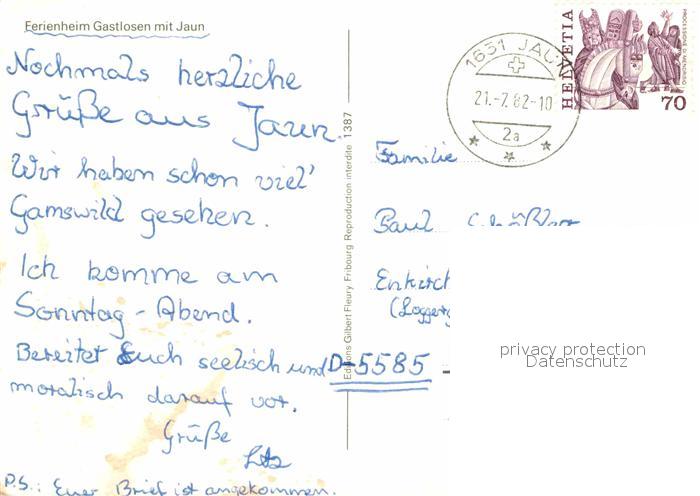 Ferienheim Gastlosen mit Jaun
Nochmals herzliche
Grüße aus Jaun.
Wir haben schon viel
Gamswild gesehen.
Ich komme am
Sonntag-Abend.
Bereitet Euch seelisch und
moralisch darauf vor.
Grüße
P.S.: Euer Brief ist angekommen.
Editions Gilbert Fleury, Fribourg Reproduction interdite 1387
1631 JAUN
21.-7.82-10
2a
HELVETIA
70
Familie
Paul
Enkirch
D-5585
privacy protection
Datenschutz